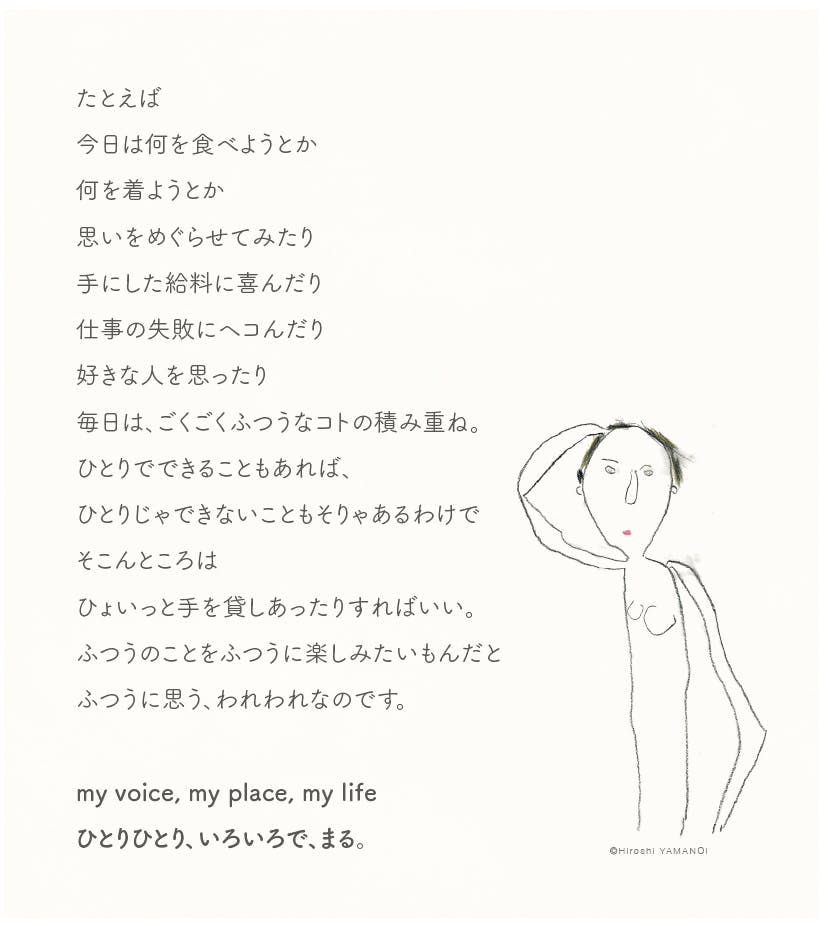 たとえば
今日は何を食べようとか
何を着ようとか
思いをめぐらせてみたり
手にした給料に喜んだり
仕事の失敗にヘコんだり
好きな人を思ったり
毎日は、ごくごくふつうなコトの積み重ね。
ひとりでできることもあれば、
ひとりじゃできないこともそりゃあるわけで
そこんところは
ひょいっと手を貸しあったりすればいい。
ふつうのことをふつうに楽しみたいもんだと
ふつうに思う、われわれなのです。
my voice, my place, my life
ひとりひとり、いろいろで、まる。
©Hiroshi YAMANOI